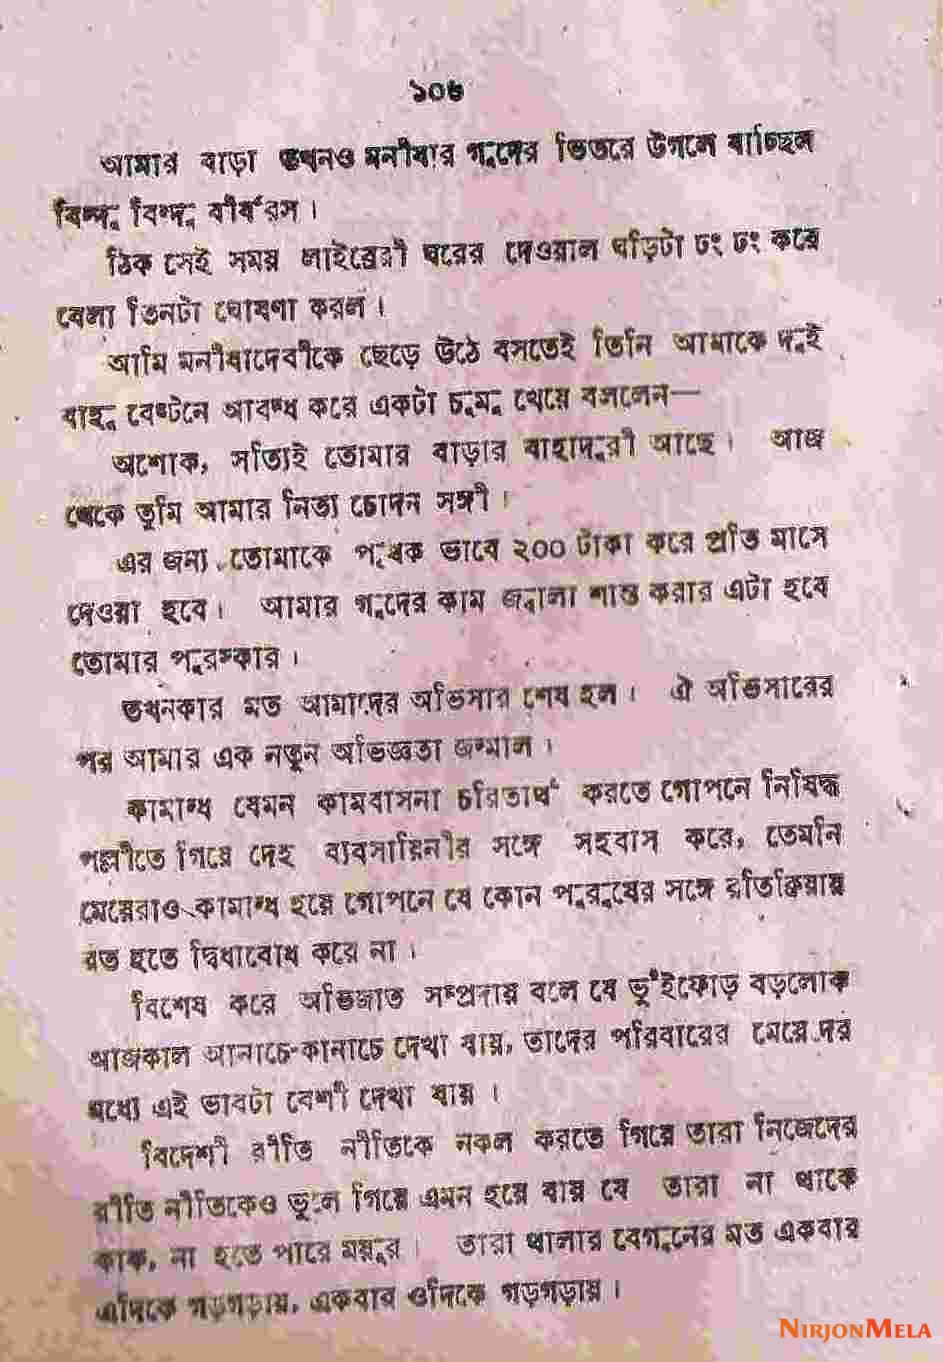 ১০৬
আমার বাড়া তখনও মনীষার গুদের ভিতরে উগলে যাচ্ছিল
বিন্দু বিন্দু বীর্যরস ।
ঠিক সেই সময় লাইব্রেরী ঘরের দেওয়াল ঘড়িটা ঢং ঢং করে
বেলা তিনটা ঘোষণা করল ।
আমি মনীষাদেবীকে ছেড়ে উঠে বসতেই তিনি আমাকে দুই
বাহু বেষ্টনে আবদ্ধ করে একটা চুমু খেয়ে বললেন—
অশোক, সত্যিই তোমার বাড়ার বাহাদুরী আছে । আজ
থেকে তুমি আমার নিত্য চোদন সঙ্গী ।
এর জন্য তোমাকে পৃথক ভাবে ২০০ টাকা করে প্রতি মাসে
দেওয়া হবে । আমার গুদের কাম জ্বালা শান্ত করার এটা হবে
তোমার পুরস্কার ।
তখনকার মত আমাদের অভিসার শেষ হল । ঐ অভিসারের
পর আমার এক নতুন অভিজ্ঞতা জন্মাল ।
কামান্ধ যেমন কামবাসনা চরিতার্থ করতে গোপনে নিষিদ্ধ
পল্লীতে গিয়ে দেহ ব্যবসায়িনীর সঙ্গে সহবাস করে, তেমনি
মেয়েরাও কামান্ধ হয়ে গোপনে যে কোন পুরুষের সঙ্গে রতিক্রিয়ায়
রত হতে দ্বিধাবোধ করে না ।
বিশেষ করে অভিজাত সম্প্রদায় বলে যে ভুঁইফোড় বড়লোক
আজকাল আনাচে-কানাচে দেখা যায়, তাদের পরিবারের মেয়েদের
মধ্যে এই ভাবটা বেশী দেখা যায় ।
বিদেশী রীতি নীতিকে নকল করতে গিয়ে তারা নিজেদের
রীতি নীতিকেও ভুলে গিয়ে এমন হয়ে যায় যে তারা না থাকে
কাক, না হতে পারে ময়ূর । তারা থালার বেগুনের মত একবার
এদিকে গড়গড়ায়, একবার ওদিকে গড়গড়ায় ।
NIRJONMELA